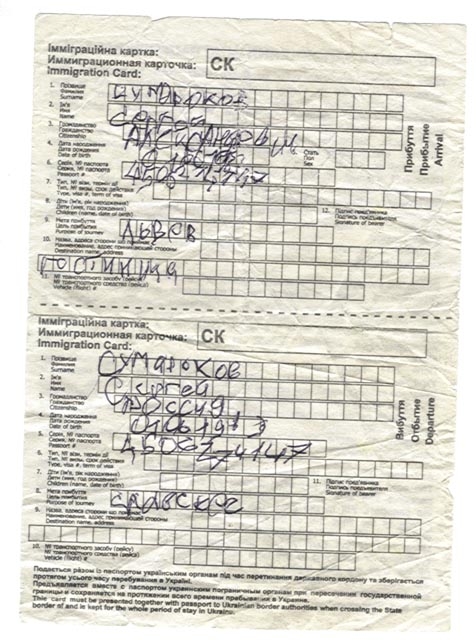 Імміграційна картка:
Иммиграционная карточка: СК
Immigration Card:
1. Прізвище
Фамилия
Surname
2. Ім'я
Имя
Name
Сергей
3. Громадянство
Гражданство
Citizenship
4. Дата народження
Дата рождения
Date of birth
Стать
Пол
Sex
5. Серія, № паспорта
Серия, № паспорта
Passport #
6. Тип, № візи, термін дії
Тип, № визы, срок действия
Type, visa #, term of visa
7. Діти (Ім'я, рік народження)
Дети (имя, год рождения)
Children (name, date of birth)
12. Підпис пред'явника
Подпись предъявителя
Signature of bearer
9. Мета прибуття
Цель прибытия
Purpose of journey
10. Назва, адреса сторони що приймає
Наименование, адрес принимающей стороны
Destination name, address
11. № транспортного засобу (рейсу)
№ транспортного средства (рейса)
Vehicle (flight) #
Прибуття
Прибытие
Arrival
Імміграційна картка:
Иммиграционная карточка: СК
Immigration Card:
1. Прізвище
Фамилия
Surname
Сумароков
2. Ім'я
Имя
Name
Сергей
3. Громадянство
Гражданство
Citizenship
Россия
4. Дата народження
Дата рождения
Date of birth
5. Серія, № паспорта
Серия, № паспорта
Passport #
6. Тип, № візи, термін дії
Тип, № визы, срок действия
Type, visa #, term of visa
7. Діти (Ім'я, рік народження)
Дети (имя, год рождения)
Children (name, date of birth)
11. Підпис пред'явника
Подпись предъявителя
Signature of bearer
8. Мета прибуття
Цель прибытия
Purpose of journey
9. Назва, адреса сторони що приймає
Наименование, адрес принимающей стороны
Destination name, address
10. № транспортного засобу (рейсу)
№ транспортного средства (рейса)
Vehicle (flight) #
Вибуття
Отбытие
Departure
Подається разом із паспортом українським органам під час перетинання державного кордону та зберігається
протягом усього часу перебування в Україні.
Предъявляется вместе с паспортом украинским пограничным органам при пересечении государственной
границы и сохраняется на протяжении всего времени пребывания в Украине.
This card must be presented together with passport to Ukrainian border authorities when crossing the State
border of and is kept for the whole period of stay in Ukraine.